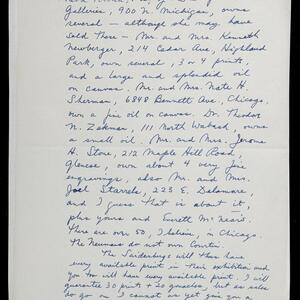 Galleries, 900 N. Michigan, owns
several – although she may have
sold them – Mr. and Mrs. Kenneth
Newberger, 214 Cedar Ave, Highland
Park, own several, 3 or 4 prints,
and a large and splendid oil
on canvas. Mr. and Mrs. Nate H.
Sherman, 6848 Bennett Ave., Chicago,
own a fine oil on canvas. Dr. Theodore
N. Zekman, 111 North Wabash, owns
a small oil. Mr. and Mrs. Jerome
H. Stone, 212 Maple Hill Road,
Glencoe, own about 4 very fine
engravings, also Mr. and Mrs.
Joel Starrels, 223 E. Delaware,
and I guess that is about it,
plus yours and Everett McNear's.
There are over 50, I believe, in Chicago.
The Neumans do not own
The Saidenbergs will then have
every available print in their exhibition and
you too will have every available print. I will
guarantee 30 prints + 20 gouaches, but as sales
do go on I cannot as yet give you a